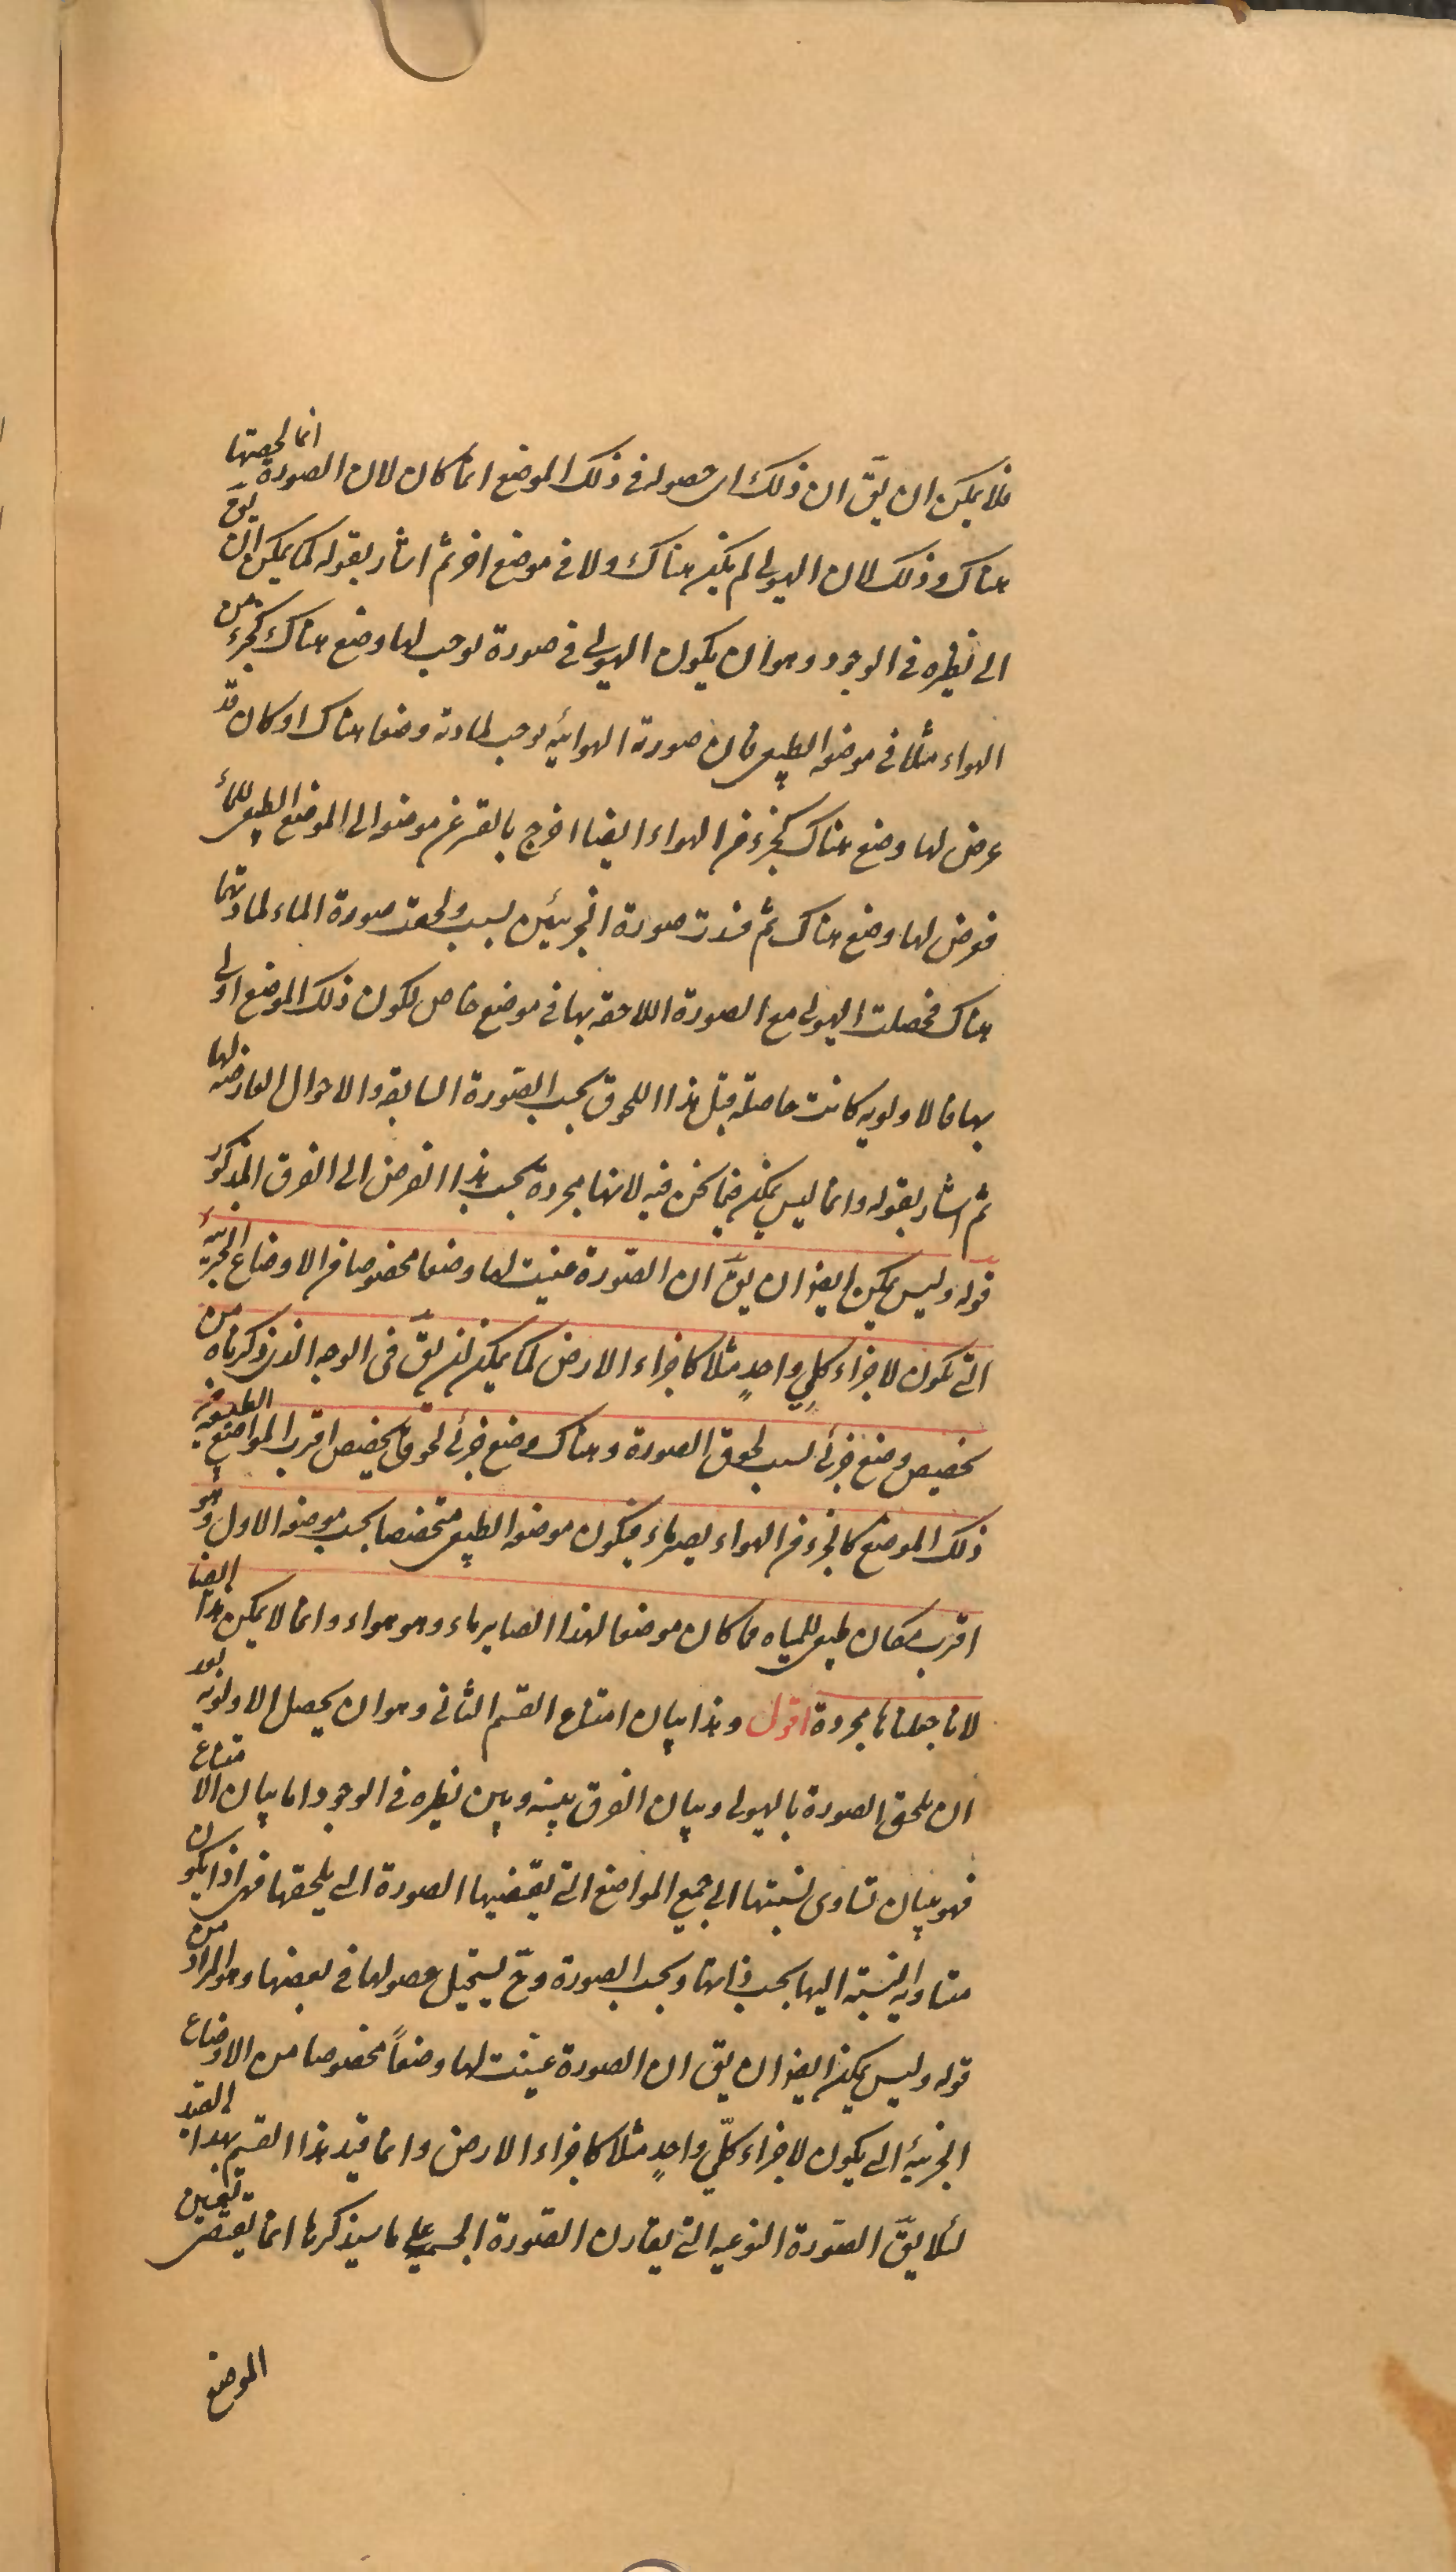 فلا يمكن ان يقّ ان ذلك اى حصوله فى ذلك الموضع انما كان لان الصورة انما لحقتها
هناك وذلك لان الهيولى لم يكن هناك ولا فى موضع اخر ثم اشار بقوله كما يمكن ان يقّ
الى نظيره فى الوجود وهو ان يكون الهيولى فى صورة توجب لها وضع هناك كجزء من
الهواء مثلا فى موضعه الطبيعى فان صورته الهوائية توجب لمادته وضعا هناك او كان قد
عرض لها وضع هناك كجزء من الهواء ايضا اخرج بالقسر عن موضعه الى الموضع الطبيعى للماء
فعرض لها وضع هناك ثم فسدت صورة الجزئين بسبب ولحقت صورة الماء لمادتهما
هناك فحصلت الهيولى مع الصورة اللاحقة بها فى موضع خاص لكون ذلك الموضع اولى
بها فالاولوية كانت حاصلة قبل هذا اللحوق بحسب الصورة السابقة والاحوال العارضة لها
ثم اشار بقوله وانما ليس يمكن فيما نحن فيه لانها مجردة بحسب هذا الفرض الى الفرق المذكور
قوله وليس يمكن ايضا ان يقّ ان الصورة عينت لها وضعا مخصوصا من الاوضاع الجزئية
التى تكون لاجزاء كلىٍ واحدٍ مثلا كاجزاء الارض كما يمكن ان يقّ فى الوجه الذى ذكرناه من
تخصيص وضع جزئى بسبب لحوق الصورة وهناك وضع جزئى لحوقا يخصص اقرب المواضع الطبيعية من
ذلك الموضع كالجزء من الهواء يصير ماء فيكون موضعه الطبيعى متخصصا بحسب موضعه الاول وهو
اقرب مكان طبيعى للمياه مما كان موضعا لهذا الصاير ماء وهو هواء وانما لا يمكن هذا ايضا
لانا جعلناها مجردة اقول وهذا بيان امتناع القسم الثانى وهو ان يحصل الاولوية بعد
ان يلحق الصورة بالهيولى وبيان الفرق بينه وبين نظيره فى الوجود اما بيان الامتناع
فهو بيان تساوى نسبتها الى جميع المواضع التى يقتضيها الصورة التى يلحقها فهى اذا يكون
متساوية النسبة اليها بحسب ذاتها وبحسب الصورة وحّ يستحيل حصولها فى بعضها وهو المراد من
قوله وليس يمكن ايضا ان يق ان الصورة عينت لها وضعاً مخصوصا من الاوضاع
الجزئية التى يكون لاجزاء كلّىٍ واحدٍ مثلا كاجزاء الارض وانما قيد هذا القسم بهذا القيد
لئلا يقّ الصورة النوعية التى يقارن الصورة الجسمية على ما سيذكرها انما يقتضى تعين
الموضع